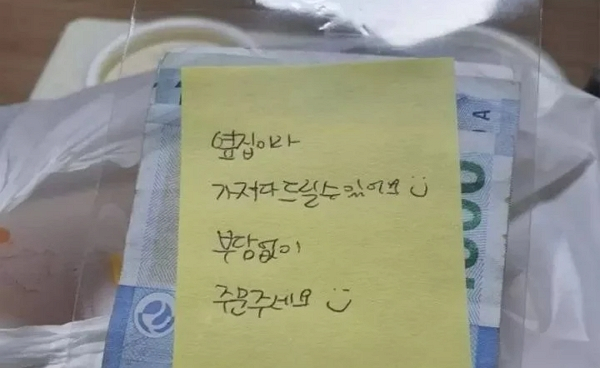 옆집이라
가져다 드릴수 있어요
부담없이
주문주세요
000
A